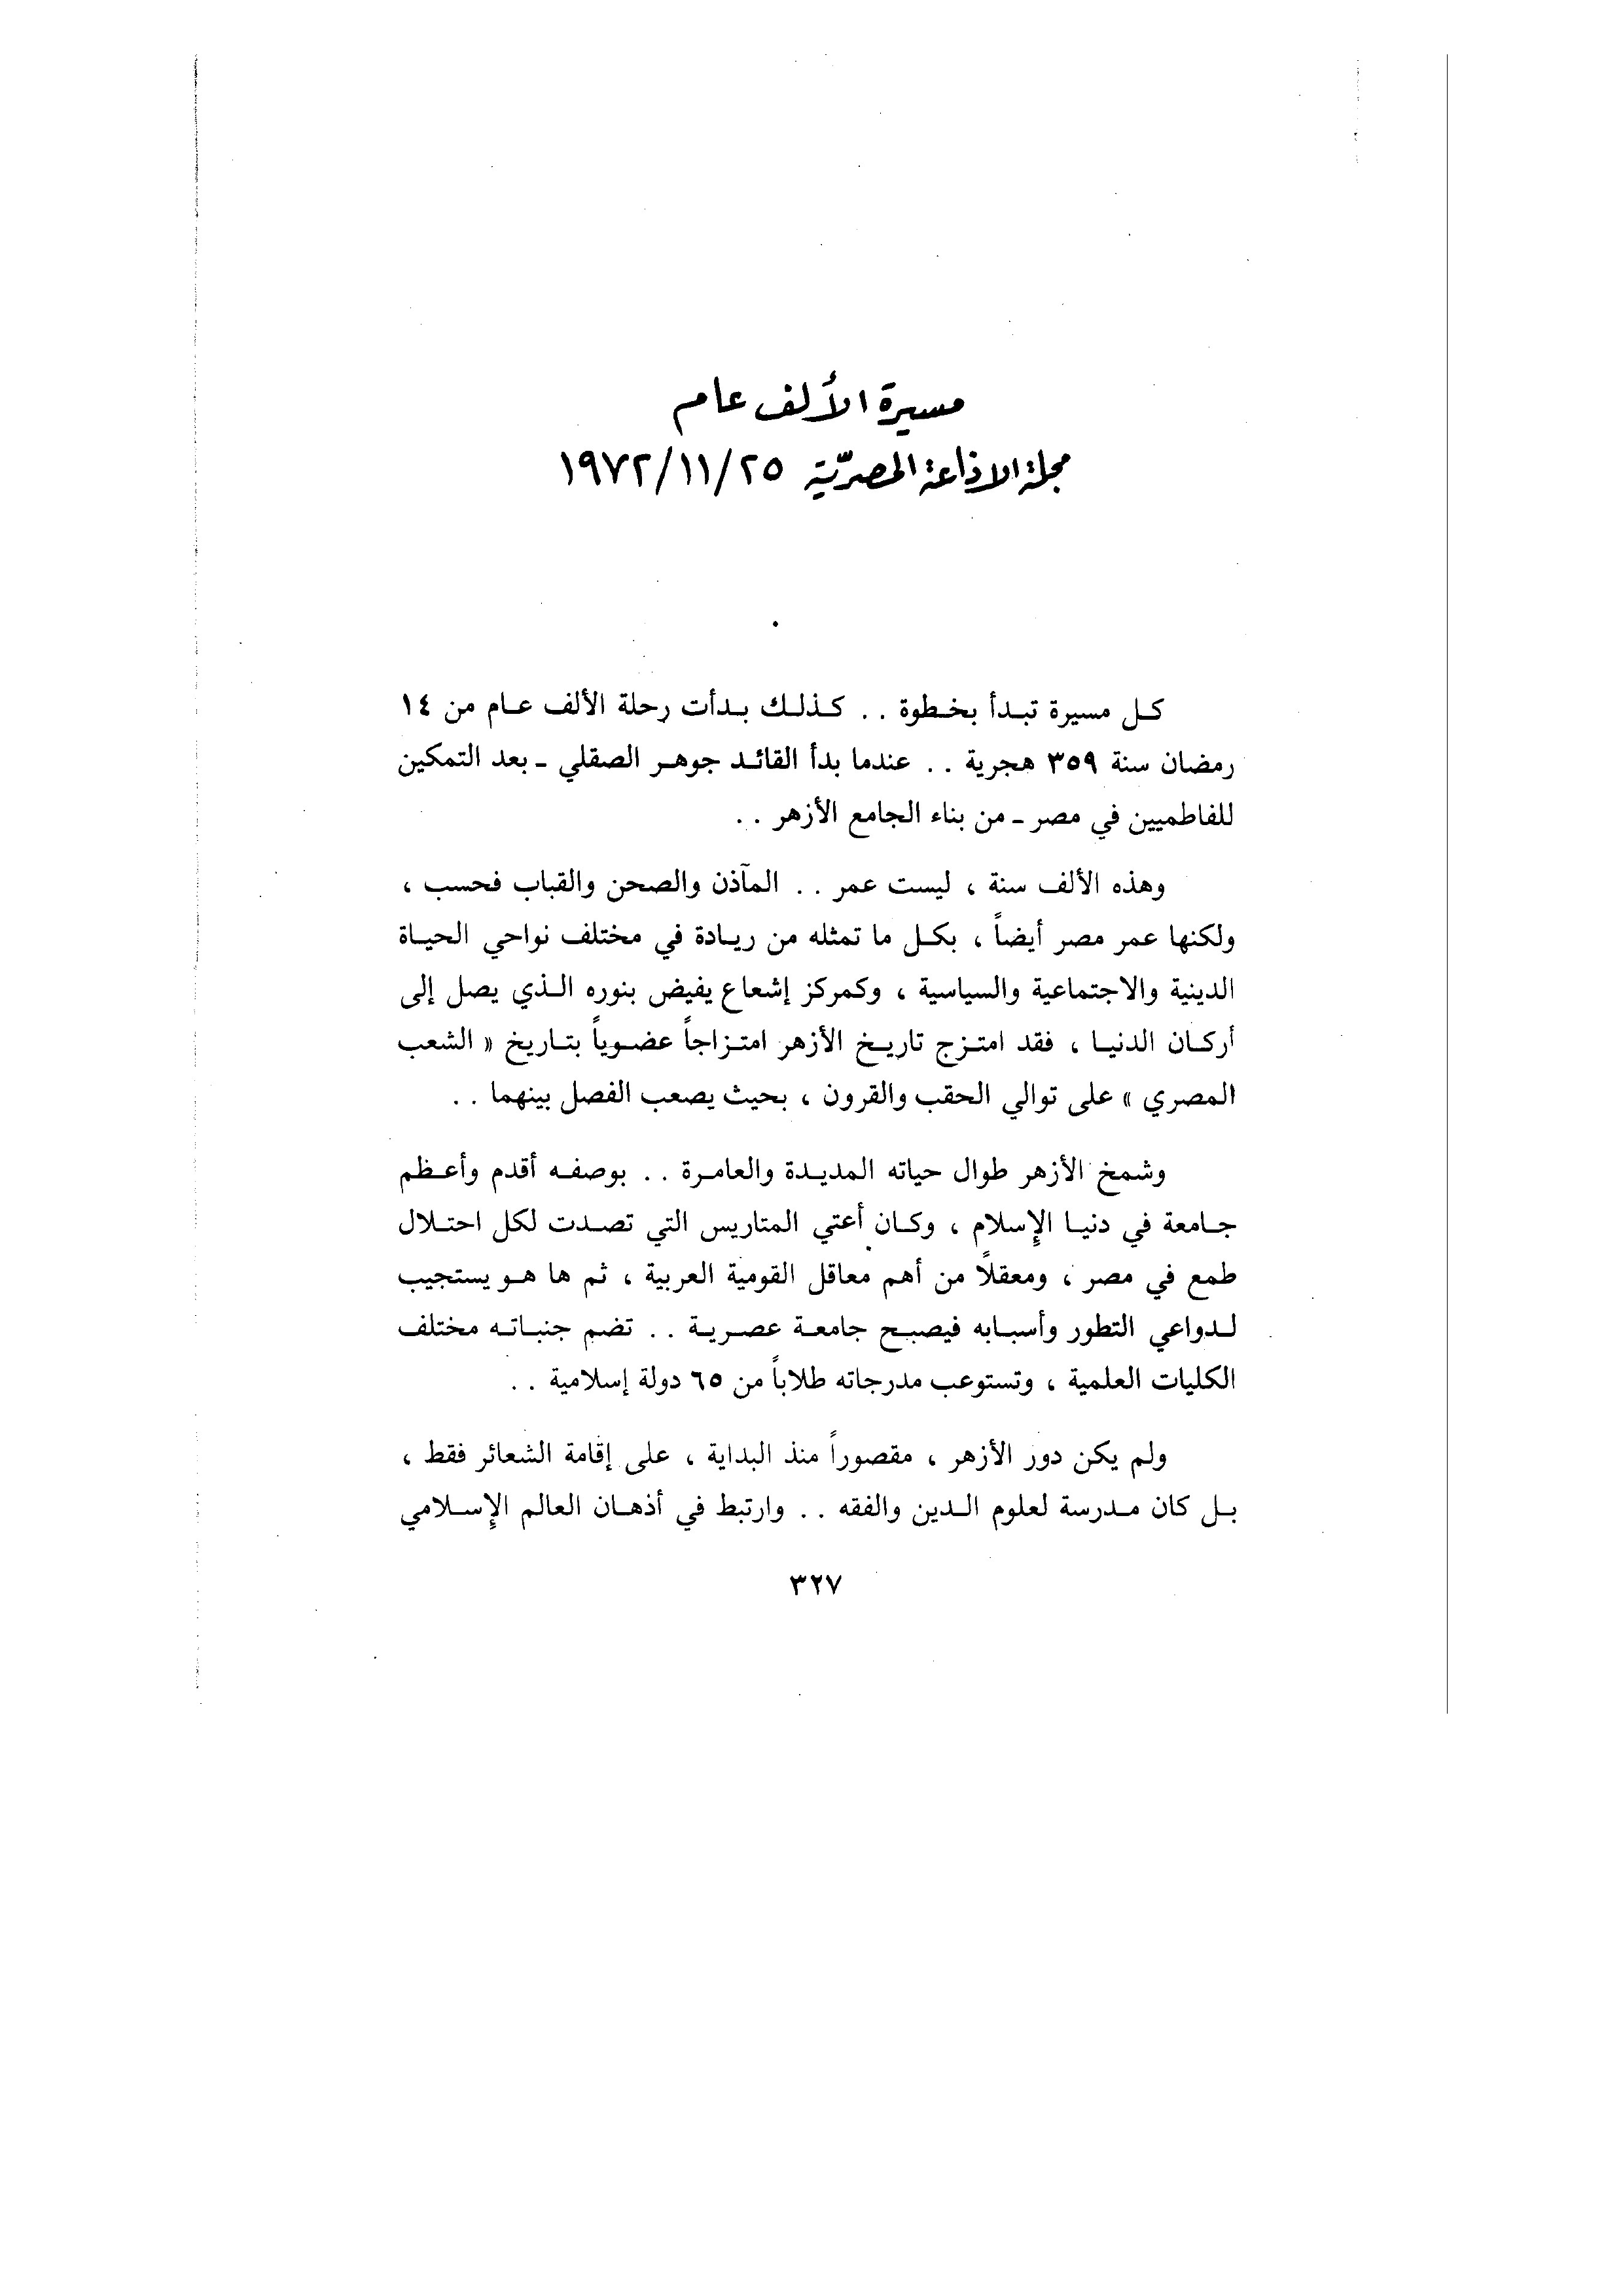 مسيرة الألف عام
مجلة الاذاعة المصريّة ٢٥/١١/١٩٧٢
كل مسيرة تبدأ بخطوة . . كذلك بدأت رحلة الألف عام من ١٤
رمضان سنة ٣٥٩ هجرية . . عندما بدأ القائد جوهر الصقلي ـ بعد التمكين
للفاطميين في مصر ـ من بناء الجامع الأزهر . .
وهذه الألف سنة ، ليست عمر . . المآذن والصحن والقباب فحسب ،
ولكنها عمر مصر أيضاً ، بكل ما تمثله من ريادة في مختلف نواحي الحياة
الدينية والاجتماعية والسياسية ، وكمركز إشعاع يفيض بنوره الذي يصل إلى
أركان الدنيا ، فقد امتزج تاريخ الأزهر امتزاجاً عضوياً بتاريخ « الشعب
المصري » على توالي الحقب والقرون ، بحيث يصعب الفصل بينهما . .
وشمخ الأزهر طوال حياته المديدة والعامرة . . بوصفه أقدم وأعظم
جامعة في دنيا الإسلام ، وكان أعتي المتاريس التي تصدت لكل احتلال
طمع في مصر ، ومعقلاً من أهم معاقل القومية العربية ، ثم ها هو يستجيب
لدواعي التطور وأسبابه فيصبح جامعة عصرية . . تضم جنباته مختلف
الكليات العلمية ، وتستوعب مدرجاته طلاباً من ٦٥ دولة إسلامية . .
ولم يكن دور الأزهر ، مقصوراً منذ البداية ، على إقامة الشعائر فقط ،
بل كان مدرسة لعلوم الدين والفقه . . وارتبط في أذهان العالم الإسلامي
٣٢٧